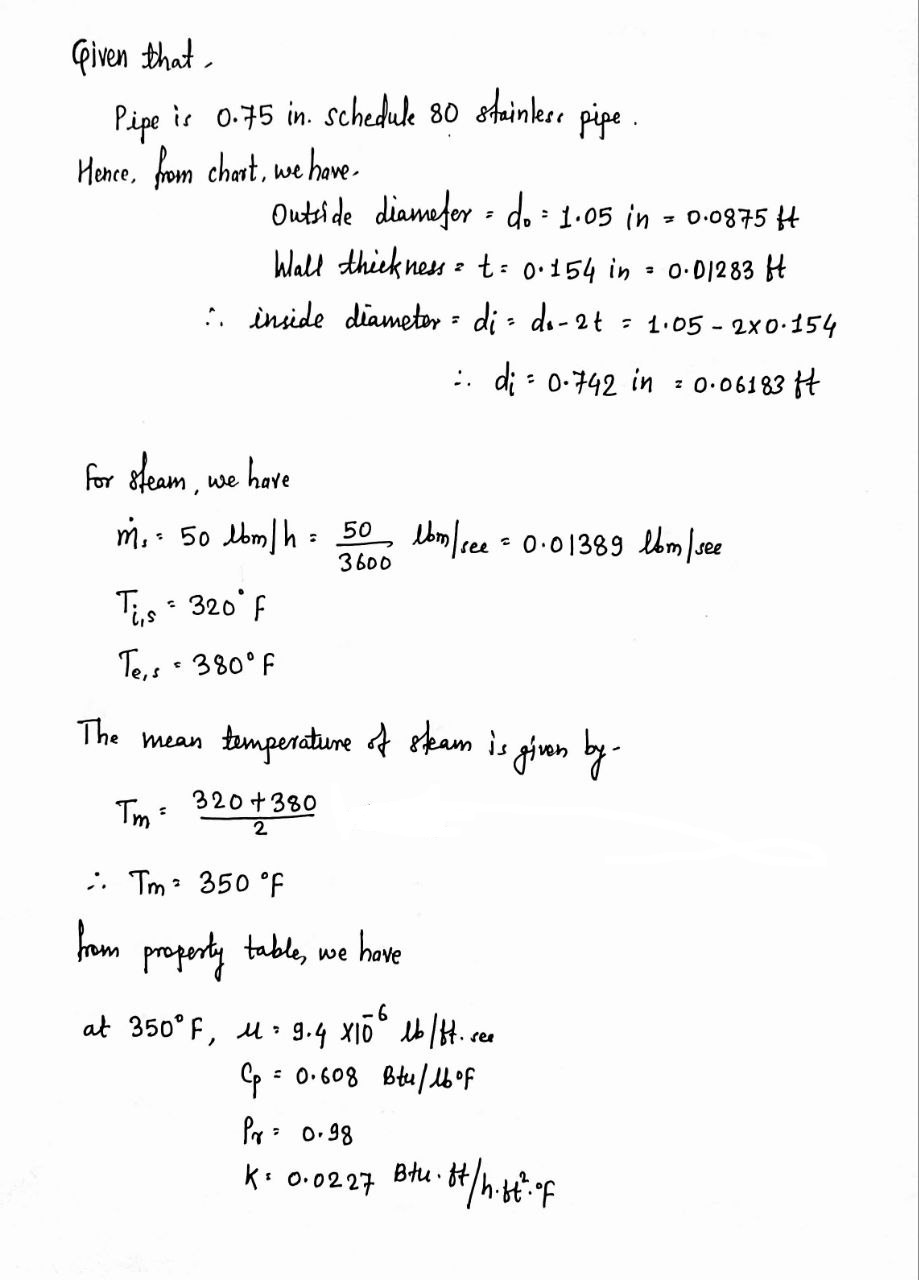 Given that,
Pipe is 0.75 in. schedule 80 stainless pipe.
Hence, from chart, we have-
Outside diameter = do = 1.05 in = 0.0875 ft
Wall thickness = t = 0.154 in = 0.01283 ft
∴ inside diameter = di = do - 2t = 1.05 - 2x0.154
∴ di = 0.742 in = 0.06183 ft
For steam, we have
ṁs = 50 lbm/h = 50/3600 lbm/sec = 0.01389 lbm/sec
Ti,s = 320°F
Te,s = 380°F
The mean temperature of steam is given by-
Tm = (320+380)/2
∴ Tm = 350 °F
from property table, we have
at 350°F, μ = 9.4 x10⁻⁶ lb/ft.sec
Cp = 0.608 Btu/lb°F
Pr = 0.98
K = 0.0227 Btu.ft/h.ft².°F